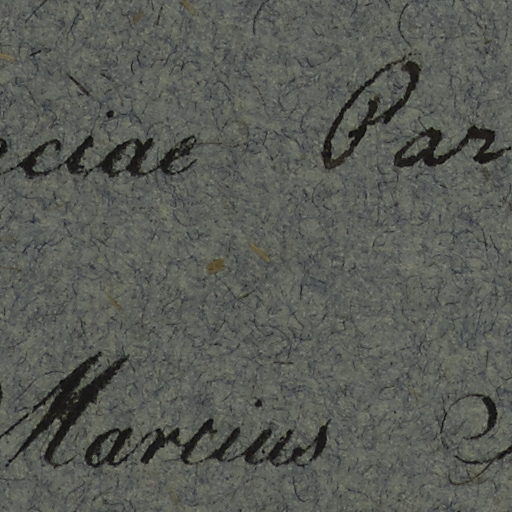 eciae Par
Marcius